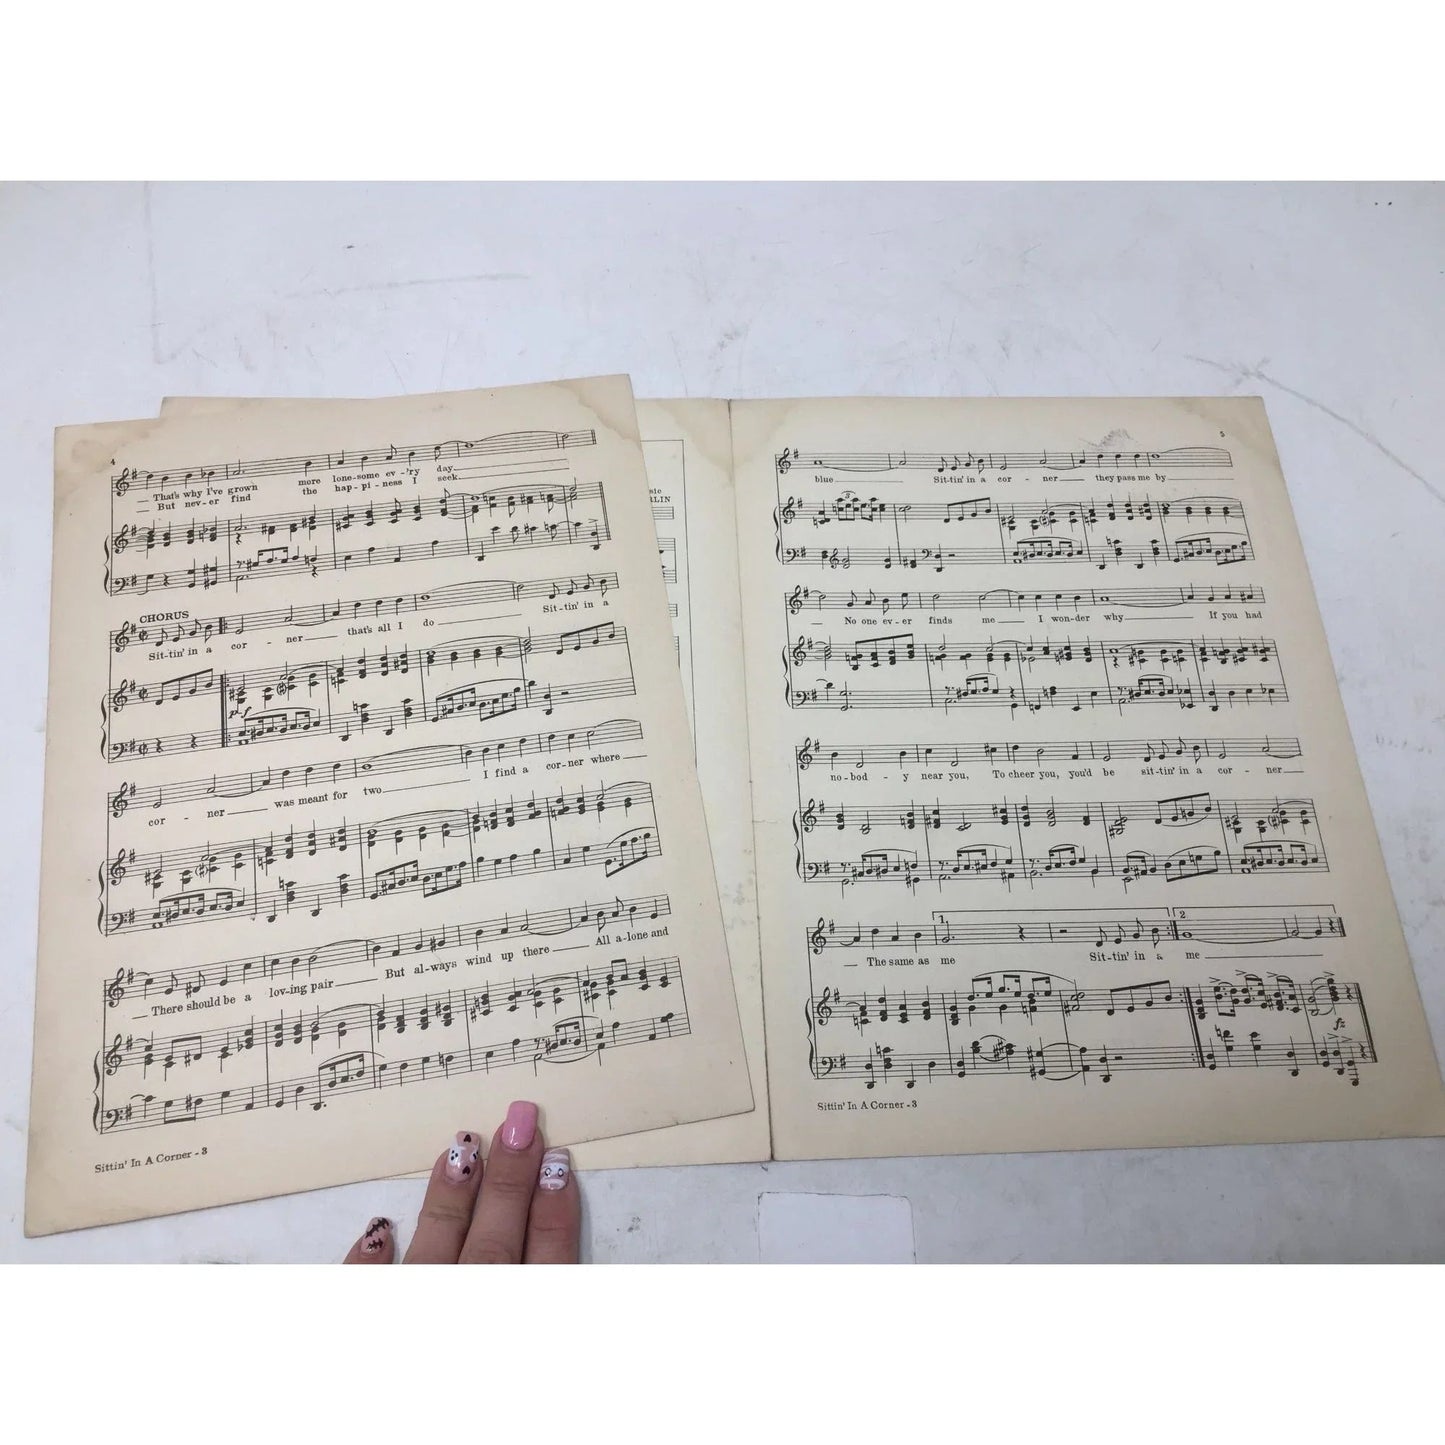 4
That's why I've grown more lone-some ev-'ry day
But nev-er find the hap-pi-ness I seek
CHORUS
Sit-tin' in a cor - ner that's all I do Sit-tin' in a
p-f
cor - ner was meant for two I find a cor-ner where
There should be a lov-ing pair But al-ways wind up there All a-lone and
Sittin' In A Corner - 3
5
blue Sit-tin' in a cor - ner they pass me by
3
No one ev-er finds me I won-der why If you had
no-bod - y near you, To cheer you, you'd be sit-tin' in a cor - ner
1. 2
The same as me Sit-tin' in a me
fz
Sittin' In A Corner - 3